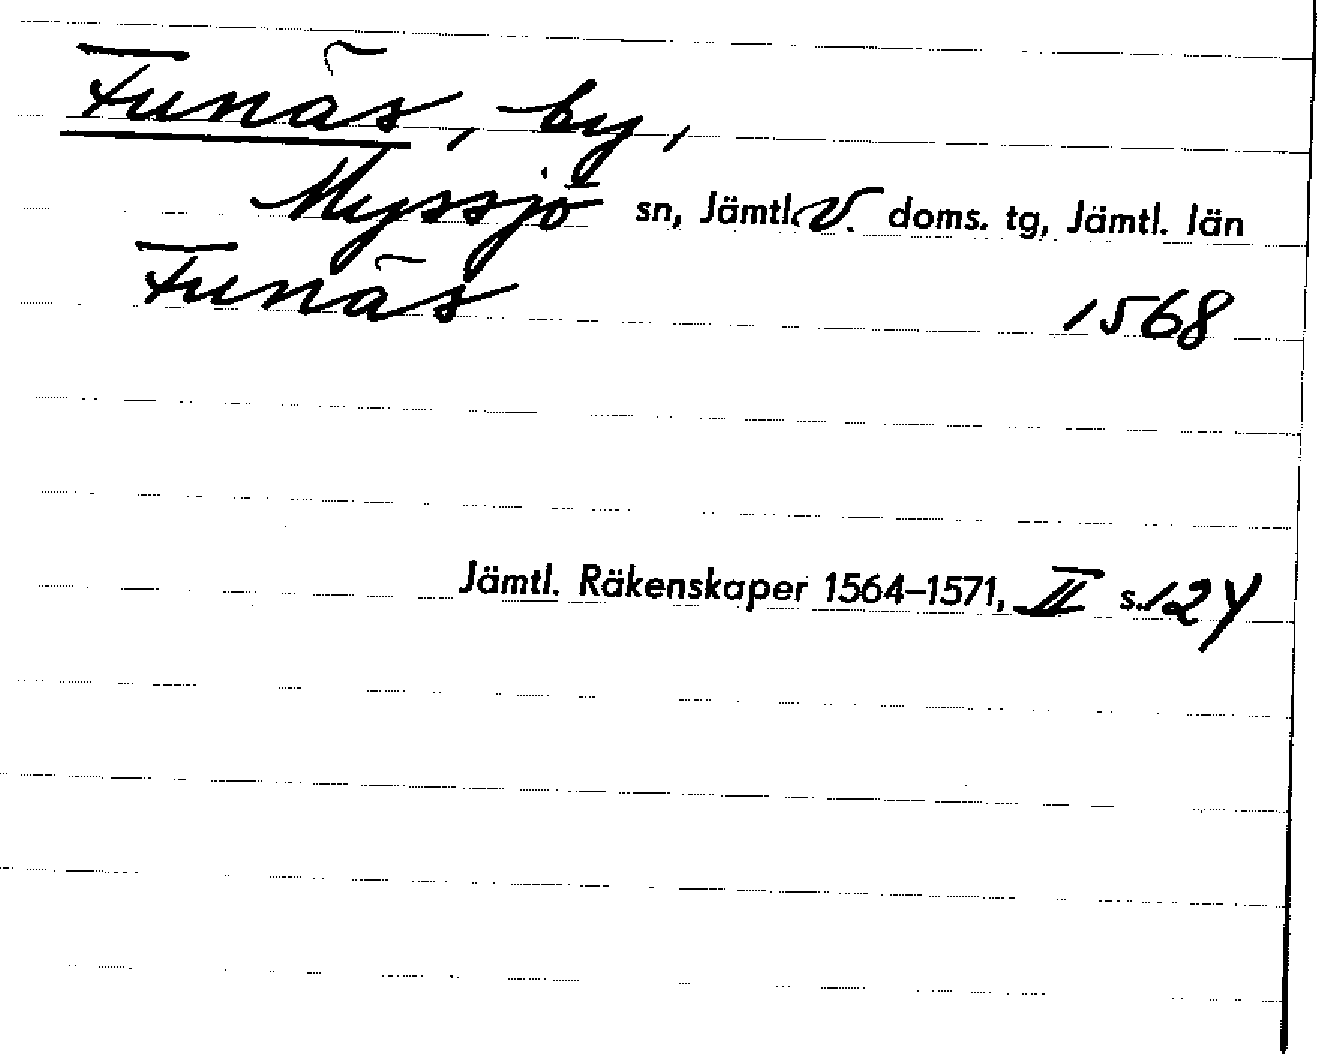 Funäs, by,
Myssjö sn, Jämtl. V. doms. tg, Jämtl. län
Funäs 1568
Jämtl. Räkenskaper 1564–1571, II s. 124